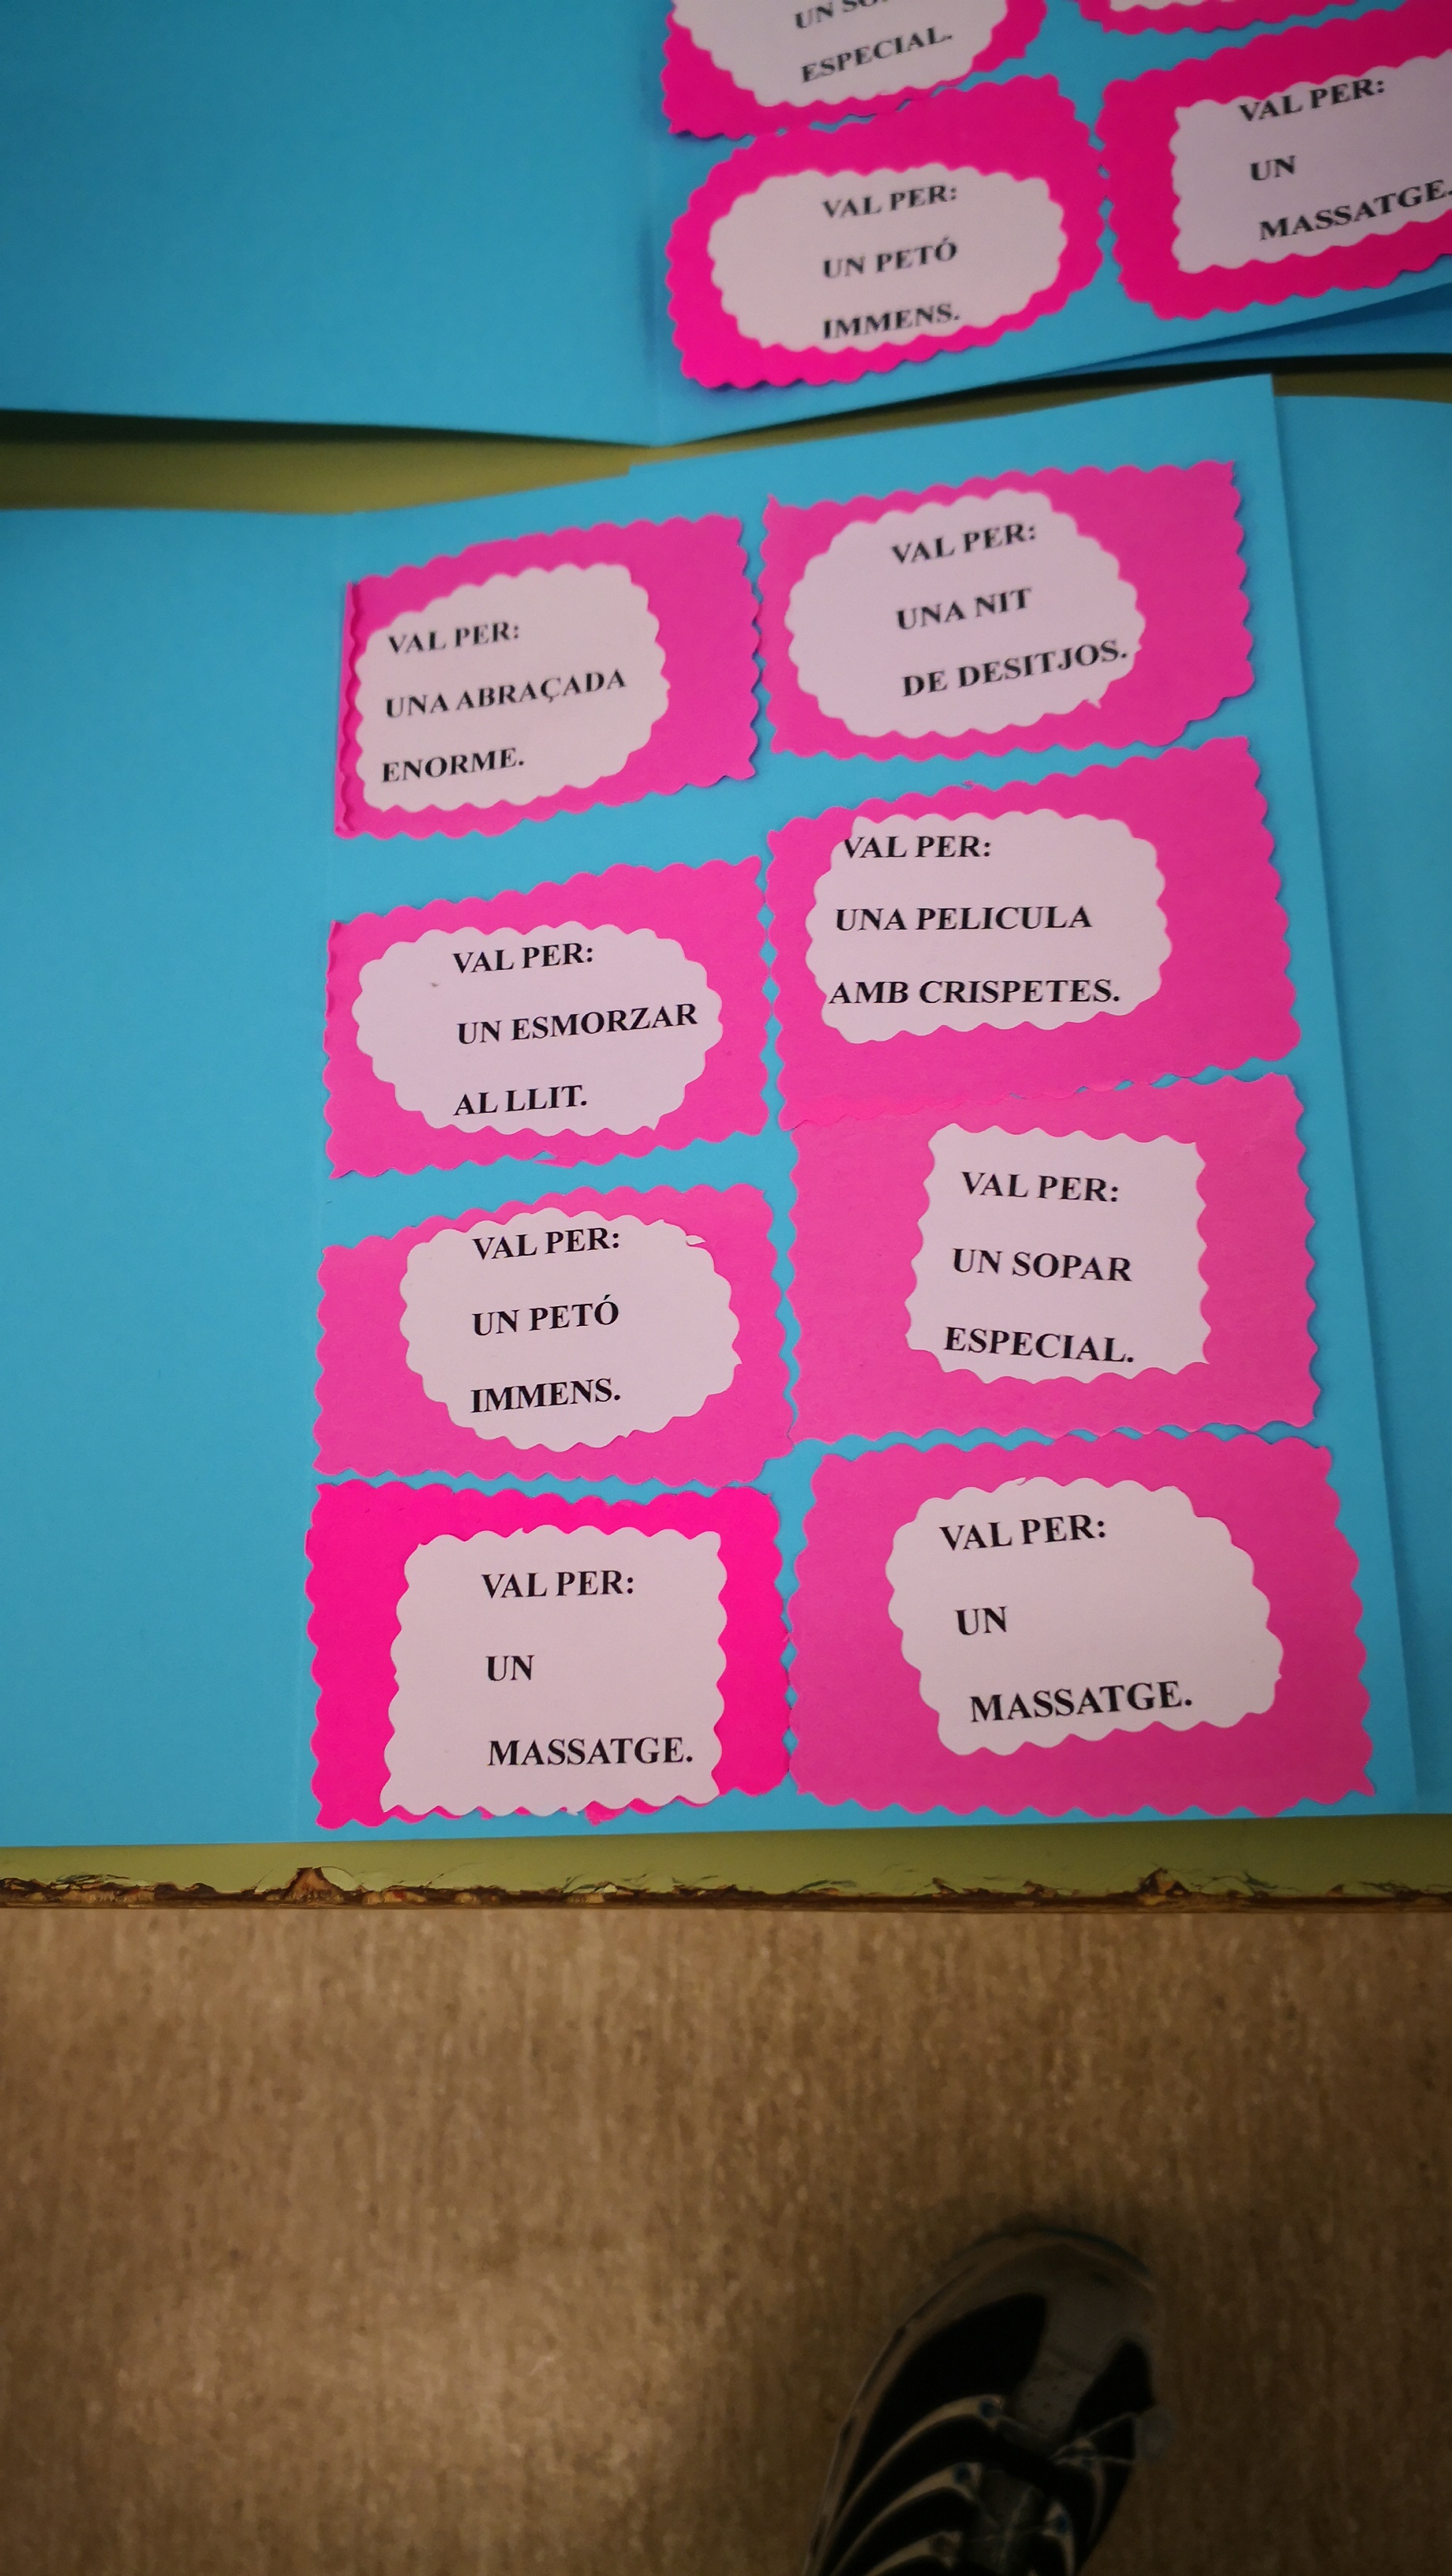 ESPECIAL.
VAL PER:
UN PETÓ
IMMENS.
VAL PER:
UN
MASSATGE.
VAL PER:
UNA ABRAÇADA
ENORME.
VAL PER:
UNA NIT
DE DESITJOS.
VAL PER:
UN ESMORZAR
AL LLIT.
VAL PER:
UNA PELICULA
AMB CRISPETES.
VAL PER:
UN PETÓ
IMMENS.
VAL PER:
UN SOPAR
ESPECIAL.
VAL PER:
UN
MASSATGE.
VAL PER:
UN
MASSATGE.